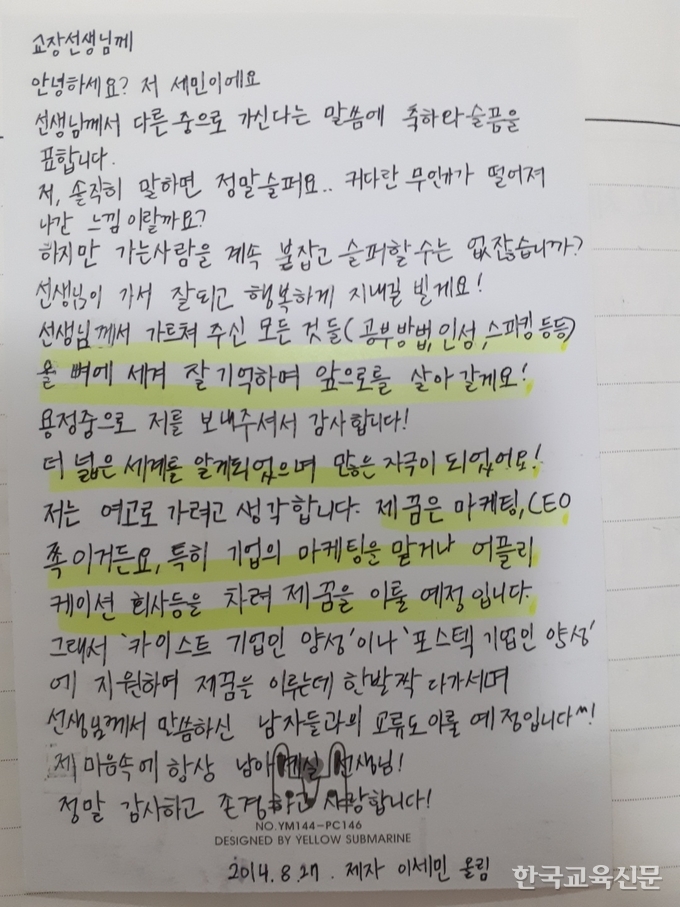 교장선생님께
안녕하세요? 저 세민이에요
선생님께서 다른중으로 가신다는 말씀에 축하와슬픔을
표합니다.
저, 솔직히 말하면 정말슬퍼요.. 커다란 무언가가 떨어져
나간 느낌이랄까요?
하지만 가는사람을 계속 붙잡고 슬퍼할수는 없잖습니까?
선생님이 가서 잘되고 행복하게 지내길 빌게요!
선생님께서 가르쳐 주신 모든 것들(공부방법,인성,스피킹등등)
을 뼈에 세겨 잘기억하며 앞으로를 살아 갈게요!
용정중으로 저를 보내주셔서 감사합니다!
더 넓은 세계를 알게되었으며 많은 자극이 되었어요!
저는 여고로 가려고 생각합니다. 제 꿈은 마케팅,CEO
쪽이거든요, 특히 기업의 마케팅을 맡거나 어플리
케이션 회사등을 차려 제꿈을 이룰 예정입니다.
그래서 '카이스트 기업인 양성'이나 '포스텍 기업인 양성'
에 지원하여 제꿈을 이루는데 한발짝 다가서며
선생님께서 말씀하신 남자들과의 교류도이룰 예정입니다^^!
제 마음속에 항상 남아계실 선생님!
정말 감사하고 존경하고 사랑합니다!
NO.YM144-PC146
DESIGNED BY YELLOW SUBMARINE
2014.8.27. 제자 이세민 올림
한국교육신문